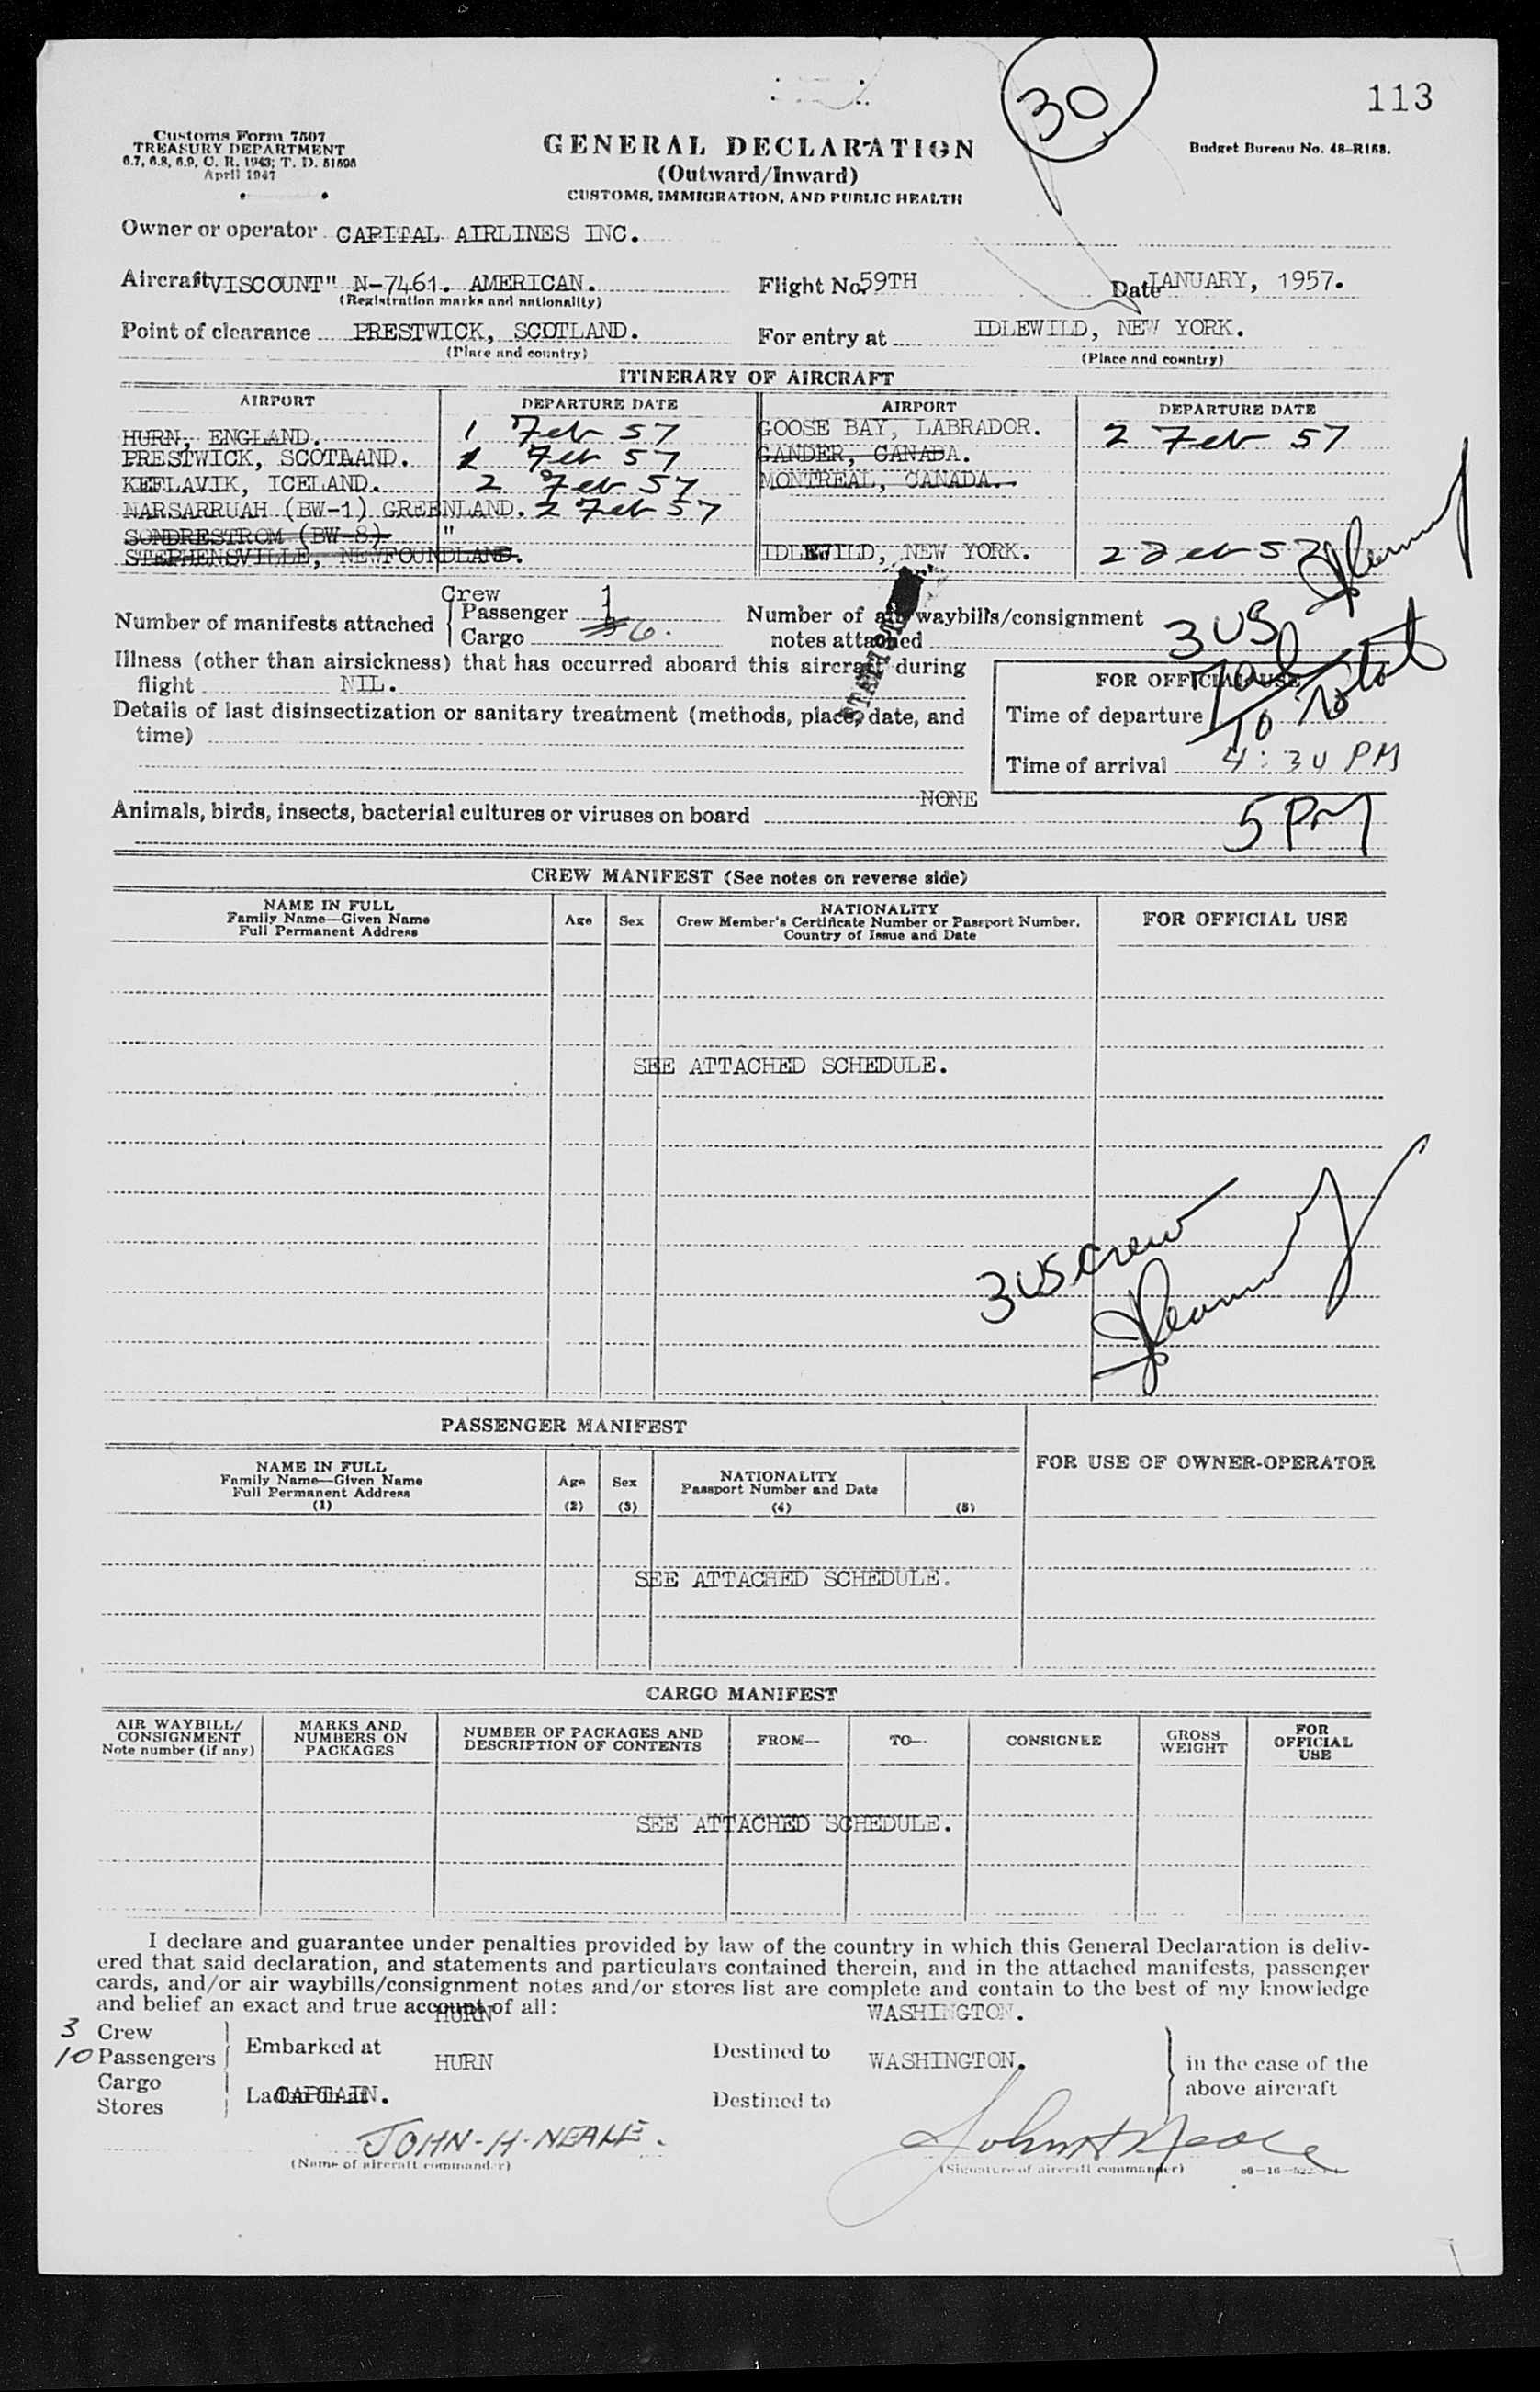 30
113
Customs Form 7507
TREASURY DEPARTMENT
6.7, 6.8, 6.9, C. R. 1943; T. D. 51696
April 1947
GENERAL DECLARATION
(Outward/Inward)
CUSTOMS, IMMIGRATION, AND PUBLIC HEALTH
Budget Bureau No. 48-R158.
Owner or operator CAPITAL AIRLINES INC.
Aircraft VISCOUNT" N-7461. AMERICAN. Flight No. 59TH Date JANUARY, 1957.
(Registration marks and nationality)
Point of clearance PRESTWICK, SCOTLAND. For entry at IDLEWILD, NEW YORK.
(Place and country) (Place and country)
ITINERARY OF AIRCRAFT
AIRPORT DEPARTURE DATE AIRPORT DEPARTURE DATE
HURN, ENGLAND. 1 Feb 57 GOOSE BAY, LABRADOR. 2 Feb 57
PRESTWICK, SCOTLAAND. 1 Feb 57 GANDER, CANADA.
KEFLAVIK, ICELAND. 2 Feb 57 MONTREAL, CANADA.
NARSARRUAH (BW-1) GREENLAND. 2 Feb 57
SONDRESTROM (BW-8) "
STEPHENSVILLE, NEWFOUNDLAND. IDLEWILD, NEW YORK. 2 Feb 57
Number of manifests attached
Crew 1
Passenger 1
Cargo 6.
Number of air waybills/consignment
notes attached
3 US
Total
10
Illness (other than airsickness) that has occurred aboard this aircraft during
flight NIL.
Details of last disinsectization or sanitary treatment (methods, place, date, and
time)
FOR OFFICIAL USE
Time of departure
Time of arrival 4:30 PM
5 PM
Animals, birds, insects, bacterial cultures or viruses on board NONE
CREW MANIFEST (See notes on reverse side)
NAME IN FULL
Family Name—Given Name
Full Permanent Address
Age
Sex
NATIONALITY
Crew Member's Certificate Number or Passport Number.
Country of Issue and Date
FOR OFFICIAL USE
SEE ATTACHED SCHEDULE.
3 US Crew
PASSENGER MANIFEST
NAME IN FULL
Family Name—Given Name
Full Permanent Address
(1)
Age
(2)
Sex
(3)
NATIONALITY
Passport Number and Date
(4)
(5)
FOR USE OF OWNER-OPERATOR
SEE ATTACHED SCHEDULE.
CARGO MANIFEST
AIR WAYBILL/
CONSIGNMENT
Note number (if any)
MARKS AND
NUMBERS ON
PACKAGES
NUMBER OF PACKAGES AND
DESCRIPTION OF CONTENTS
FROM—
TO—
CONSIGNEE
GROSS
WEIGHT
FOR
OFFICIAL
USE
SEE ATTACHED SCHEDULE.
I declare and guarantee under penalties provided by law of the country in which this General Declaration is deliv-
ered that said declaration, and statements and particulars contained therein, and in the attached manifests, passenger
cards, and/or air waybills/consignment notes and/or stores list are complete and contain to the best of my knowledge
and belief an exact and true account of all:
HURN WASHINGTON.
3 Crew
10 Passengers
Embarked at HURN Destined to WASHINGTON.
in the case of the
above aircraft
Cargo
Stores
Laden on at CAPTAIN. Destined to
JOHN-H-NEALE. John H Neale
(Name of aircraft commander) (Signature of aircraft commander)